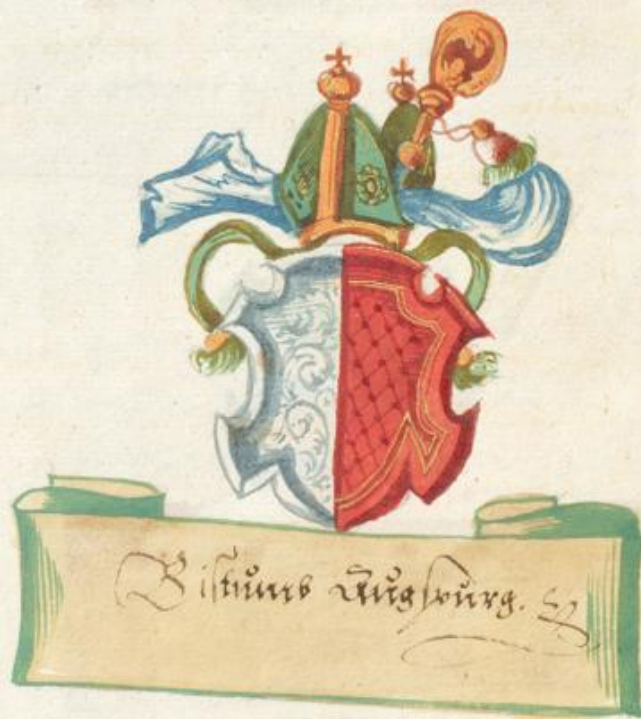 Bistumb Augspurg.